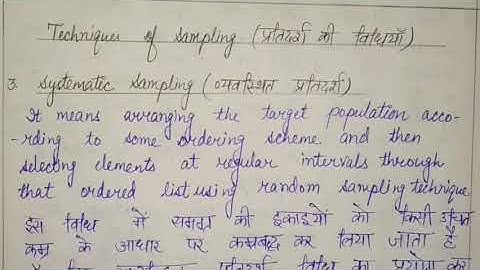 Techniques of sampling (प्रतिदर्श की विधियाँ)
3. Systematic Sampling (व्यवस्थित प्रतिदर्श)
It means arranging the target population acco-
-rding to some ordering scheme and then
selecting elements at regular intervals through
that ordered list using random sampling technique
इस विधि में समग्र की इकाइयों को किसी उचित
क्रम के आधार पर क्रमबद्ध कर लिया जाता है
प्रतिदर्श विधि का प्रयोग कर